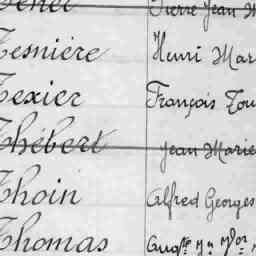 Pierre Jean M
Tesnière Henri Mar
Texier François Tou
Thébert Jean Marie
Thoin Alfred Georges
Thomas Augte